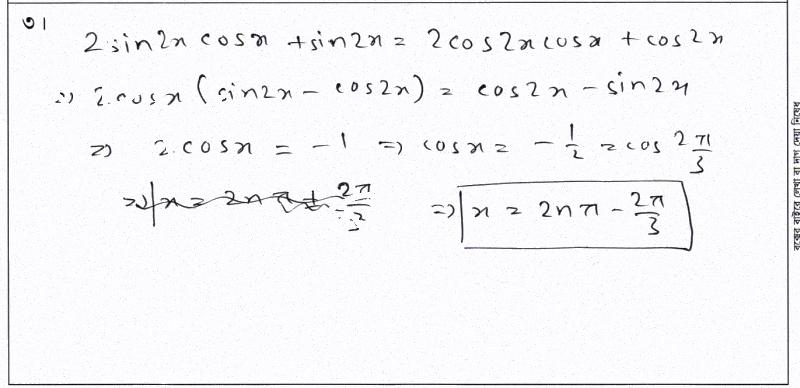 ৩।
2 sin2x cosx + sin2x = 2cos2x cosx + cos2x
=> 2.cosx (sin2x - cos2x) = cos2x - sin2x
=> 2.cosx = -1 => cosx = -1/2 = cos 2π/3
=> x = 2nπ - 2π/3